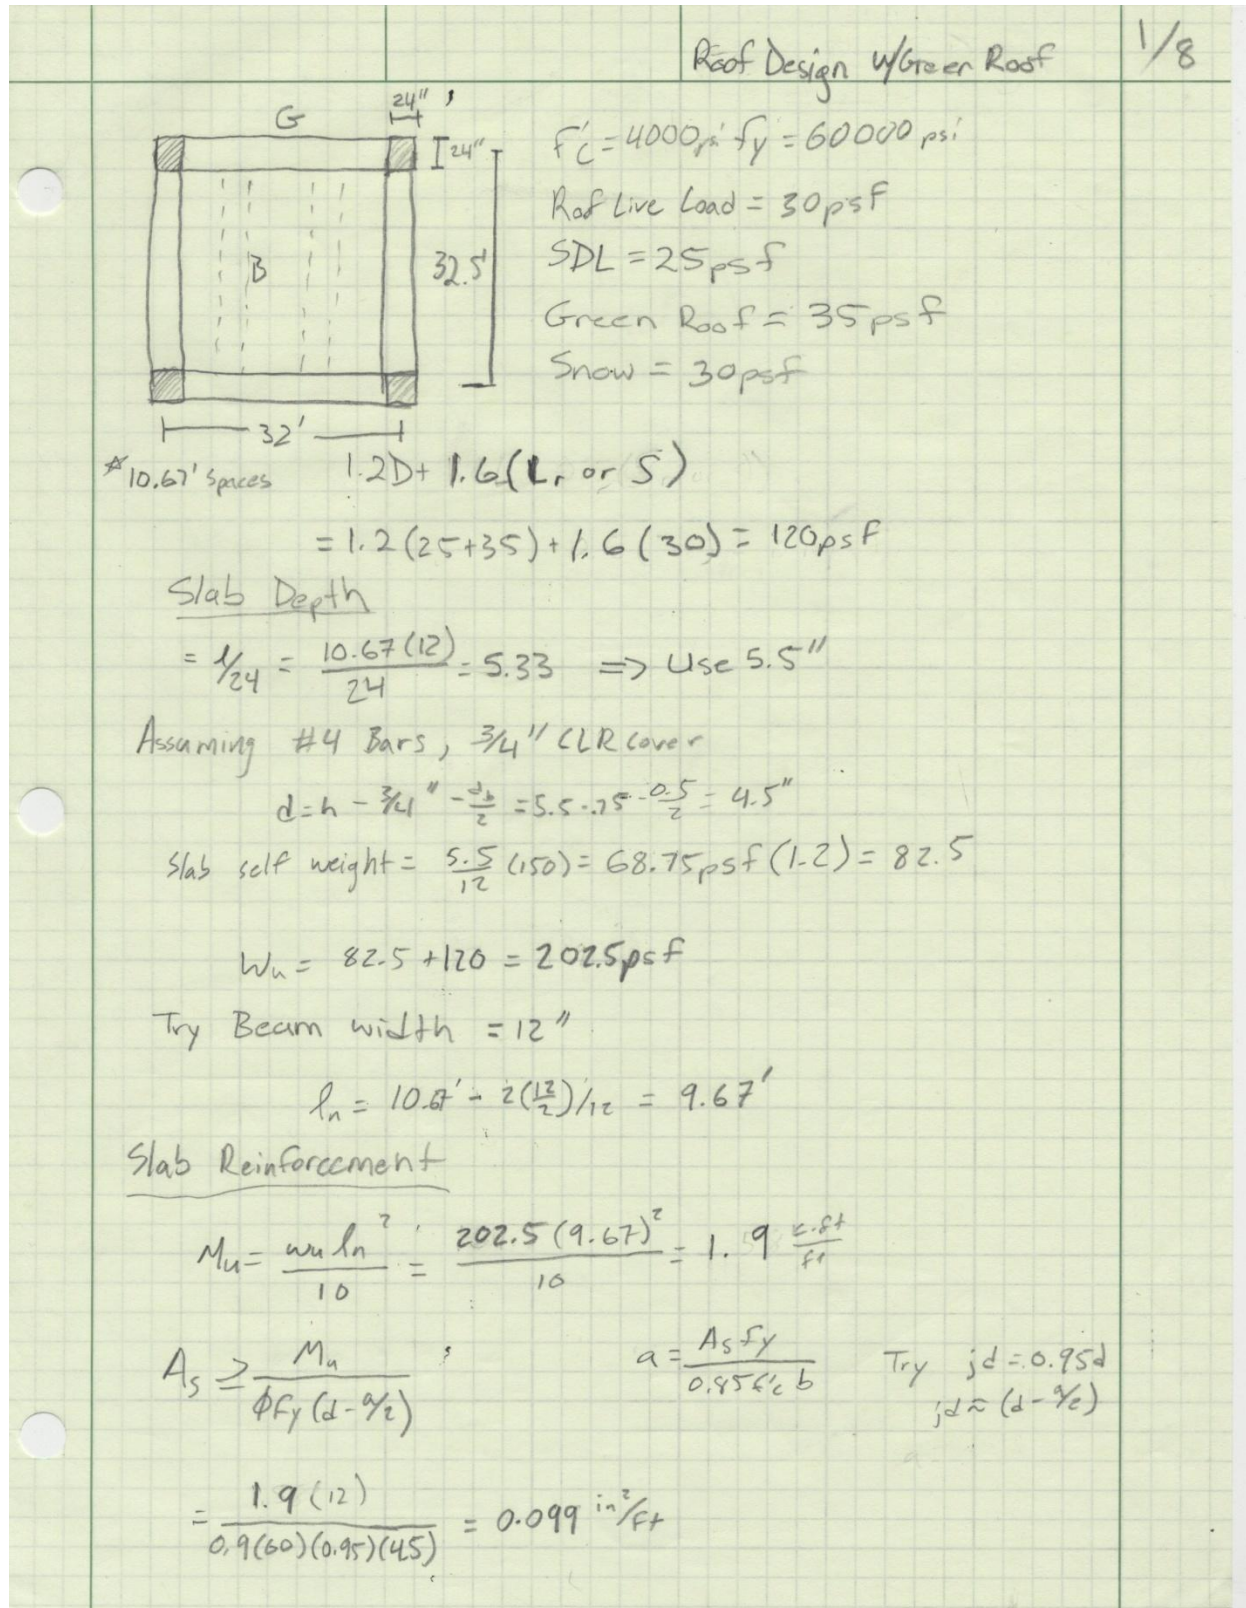 Roof Design w/Green Roof
1/8
G
24"
24"
B
32.5'
32'
f'c = 4000psi fy = 60000 psi
Roof Live Load = 30psf
SDL = 25psf
Green Roof = 35psf
Snow = 30psf
* 10.67' spaces
1.2D + 1.6(Lr or S)
= 1.2(25+35) + 1.6(30) = 120psf
Slab Depth
= l/24 = 10.67(12)/24 = 5.33 => Use 5.5"
Assuming #4 Bars, 3/4" CLR cover
d = h - 3/4" - db/2 = 5.5 - .75 - 0.5/2 = 4.5"
Slab self weight = 5.5/12 (150) = 68.75psf (1.2) = 82.5
Wu = 82.5 + 120 = 202.5psf
Try Beam width = 12"
ln = 10.67' - 2(12/2)/12 = 9.67'
Slab Reinforcement
Mu = wu ln²/10 = 202.5(9.67)²/10 = 1.9 k·ft/ft
As ≥ Mu/ϕFy(d - a/2)
a = Asfy/0.85f'c b
Try jd = 0.95d
jd ≈ (d - a/2)
= 1.9(12)/0.9(60)(0.95)(4.5) = 0.099 in²/ft